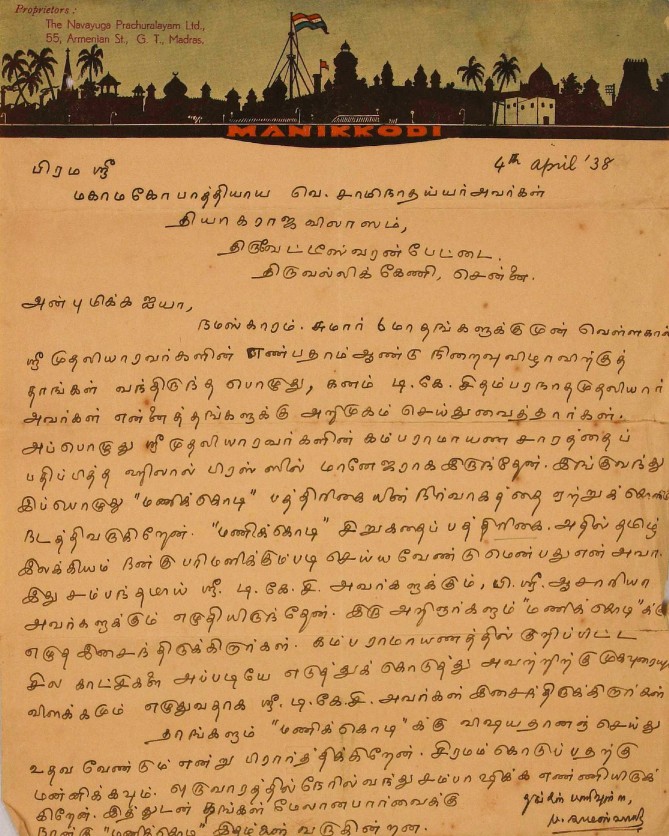 Proprietors :
The Navayuga Prachuralayam Ltd.,
55, Armenian St., G. T., Madras.
MANIKKODI
4th April '38
பிரம ஸ்ரீ
மகாமகோபாத்தியாய வெ. சாமிநாதய்யர் அவர்கள்
தியாகராஜ விலாஸம்,
திருவேட்டீஸ்வரன் பேட்டை.
திருவல்லிக்கேணி, சென்னை.
அன்புமிக்க ஐயா,
நமஸ்காரம். சுமார் 6 மாதங்களுக்குமுன் வெள்ளகால்
ஸ்ரீ முதலியாரவர்களின் எண்பதாம் ஆண்டு நிறைவு விழாவிற்குத்
தாங்கள் வந்திருந்த பொழுது, கனம் டி.கே. சிதம்பரநாத முதலியார்
அவர்கள் என்னைத் தங்களுக்கு அறிமுகம் செய்து வைத்தார்கள்.
அப்பொழுது ஸ்ரீ முதலியாரவர்களின் கம்பராமாயண சாரத்தைப்
பதிப்பித்த ஹிலால் பிரஸ்ஸில் மானேஜராக இருந்தேன். இங்கு வந்து
இப்பொழுது "மணிக்கொடி" பத்திரிகையின் நிர்வாகத்தை ஏற்றுக் கொண்டு
நடத்திவருகிறேன். "மணிக்கொடி" சிறுகதைப் பத்திரிகை. அதில் தமிழ்
இலக்கியம் நன்கு பரிமளிக்கும்படி செய்ய வேண்டுமென்பது என் அவா.
இது சம்பந்தமாய் ஸ்ரீ. டி.கே.சி. அவர்களுக்கும், பி.ஸ்ரீ. ஆசாரியா
அவர்களுக்கும் எழுதியிருந்தேன். இரு அறிஞர்களும் "மணிக்கொடி"க்கு
எழுத இசைந்திருக்கிறார்கள். கம்பராமாயணத்தில் குறிப்பிட்ட
சில காட்சிகளை அப்படியே எடுத்துக் கொடுத்து அவற்றிற்கு முகவுரையும்
விளக்கமும் எழுதுவதாக ஸ்ரீ. டி.கே.சி. அவர்கள் இசைந்திருக்கிறார்கள்
தாங்களும் "மணிக்கொடி"க்கு விஷயதானஞ் செய்து
உதவ வேண்டும் என்று பிரார்த்திக்கிறேன். சிரமம் கொடுப்பதற்கு
மன்னிக்கவும். ஒருவாரத்தில் நேரில் வந்து சம்பாஷிக்க எண்ணியிருக்
கிறேன். இத்துடன் தங்கள் மேலான பார்வைக்கு
நான்கு "மணிக்கொடி" இதழ்கள் வருகின்றன.
தங்கள்